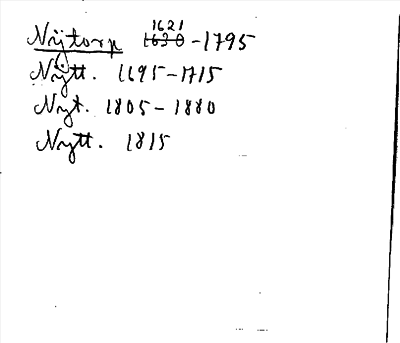 Nÿtorp 1621 1630-1795
Nÿtt. 1695-1715
Nyt. 1805-1880
Nytt. 1815